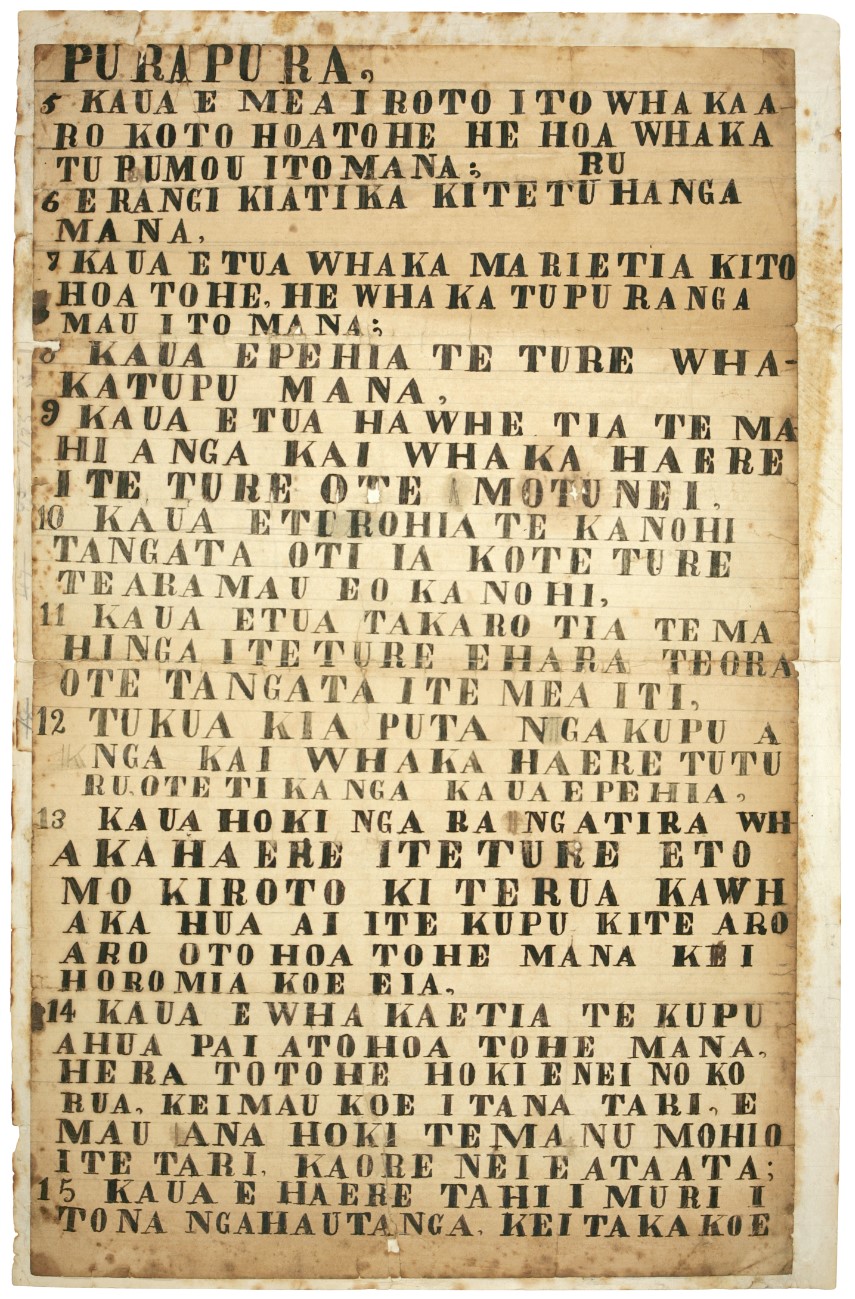 PURAPURA,
5 KAUA E MEA I ROTO I TO WHAKAA-
RO KOTO HOATOHE HE HOA WHAKA
TU PUMOU ITOMANA; RU
6 E RANGI KIATIKA KITETUHANGA
MANA,
7 KAUA ETUA WHAKA MARIETIA KITO
HOATOHE, HE WHAKATUPURANGA
MAU I TO MANA;
8 KAUA EPEHIA TE TURE WHA-
KATUPU MANA,
9 KAUA ETUA HAWHE TIA TE MA
HI ANGA KAI WHAKA HAERE
I TE TURE OTE MOTUNEI,
10 KAUA ETIROHIA TE KANOHI
TANGATA OTI IA KOTE TURE
TEARAMAU EO KANOHI,
11 KAUA ETUA TAKARO TIA TEMA
HINGA ITETURE EHARA TEORA
OTE TANGATA ITE MEA ITI,
12 TUKUA KIA PUTA NGA KUPU A
NGA KAI WHAKA HAERE TUTU
RU. OTE TIKANGA KAUAEPEHIA,
13 KAUA HOKI NGA RANGATIRA WH-
AKAHAERE ITETURE ETO
MO KIROTO KI TERUA KAWH
AKA HUA AI ITE KUPU KITE ARO
ARO OTOHOA TOHE MANA KEI
HOROMIA KOE EIA,
14 KAUA EWHAKAETIA TE KUPU
AHUA PAI ATOHOA TOHE MANA,
HERA TOTOHE HOKIENEI NO KO
RUA, KEIMAU KOE ITANA TARI, E
MAU ANA HOKI TEMANU MOHIO
ITE TARI, KAORE NEIEATAATA;
15 KAUA E HAERE TAHI I MURI I
TONA NGAHAUTANGA, KEITAKAKOE